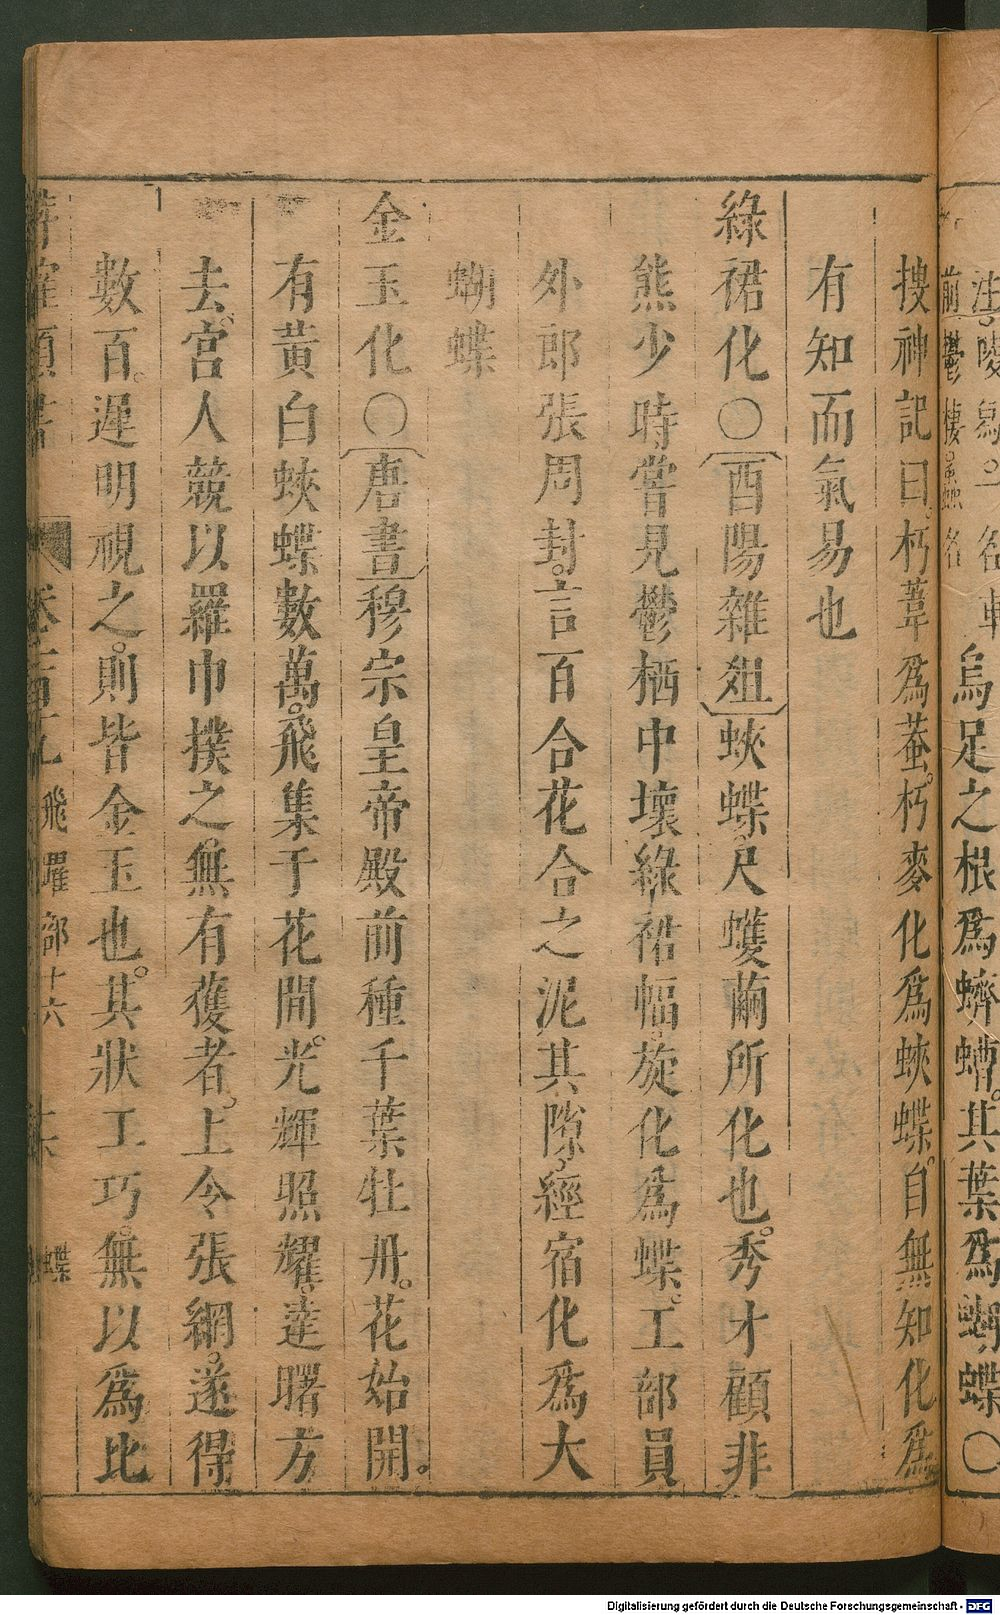 注陵舄一名車
前鬱棲虫名
烏足之根爲蠐螬其葉爲蝴蝶〇
搜神記曰朽葦爲蛬朽麥化爲蛺蝶自無知化爲
有知而氣易也
綠裙化〇酉陽雜俎蛺蝶尺蠖繭所化也秀才顧非
熊少時嘗見鬱栖中壞綠裙幅旋化爲蝶工部員
外郎張周封言百合花合之泥其隙經宿化爲大
蝴蝶
金玉化〇唐書穆宗皇帝殿前種千葉牡丹花始開
有黃白蛺蝶數萬飛集于花間光輝照耀達曙方
去宮人競以羅巾撲之無有獲者上令張網遂得
數百遲明視之則皆金玉也其狀工巧無以爲比
類書 飛躍部十六 蝶
Digitalisierung gefördert durch die Deutsche Forschungsgemeinschaft - DFG